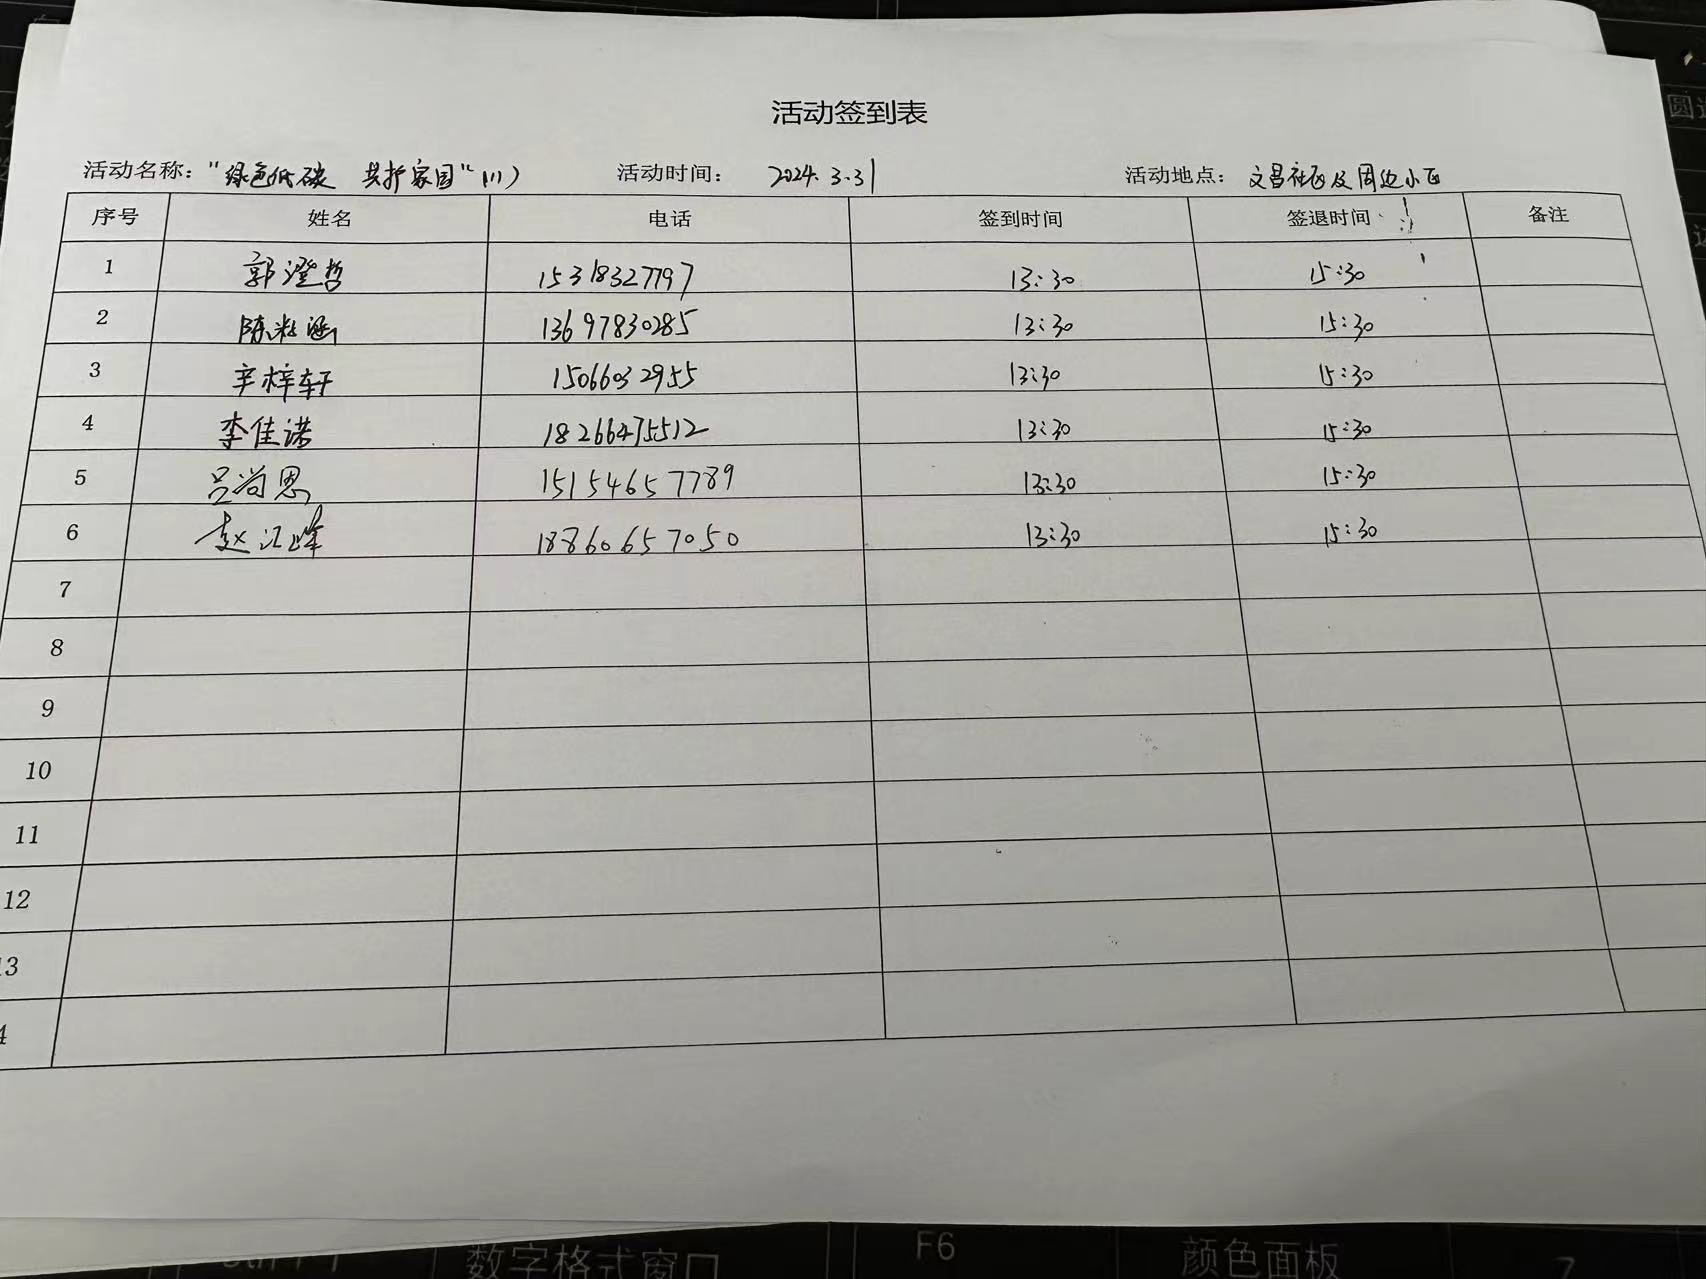 活动签到表
活动名称：“绿色低碳 共护家园”(11) 活动时间： 2024.3.31 活动地点：文昌社区及周边小区
序号 姓名 电话 签到时间 签退时间 备注
1 郭澄哲 15318327797 13:30 15:30
2 陈 涵 13697830285 13:30 15:30
3 辛梓轩 15066032955 13:30 15:30
4 李佳诺 18266475512 13:30 15:30
5 吕尚恩 15154657789 13:30 15:30
6 赵江峰 18860657050 13:30 15:30
7
8
9
10
11
12
13
4
数字格式窗口 F6 颜色面板 7